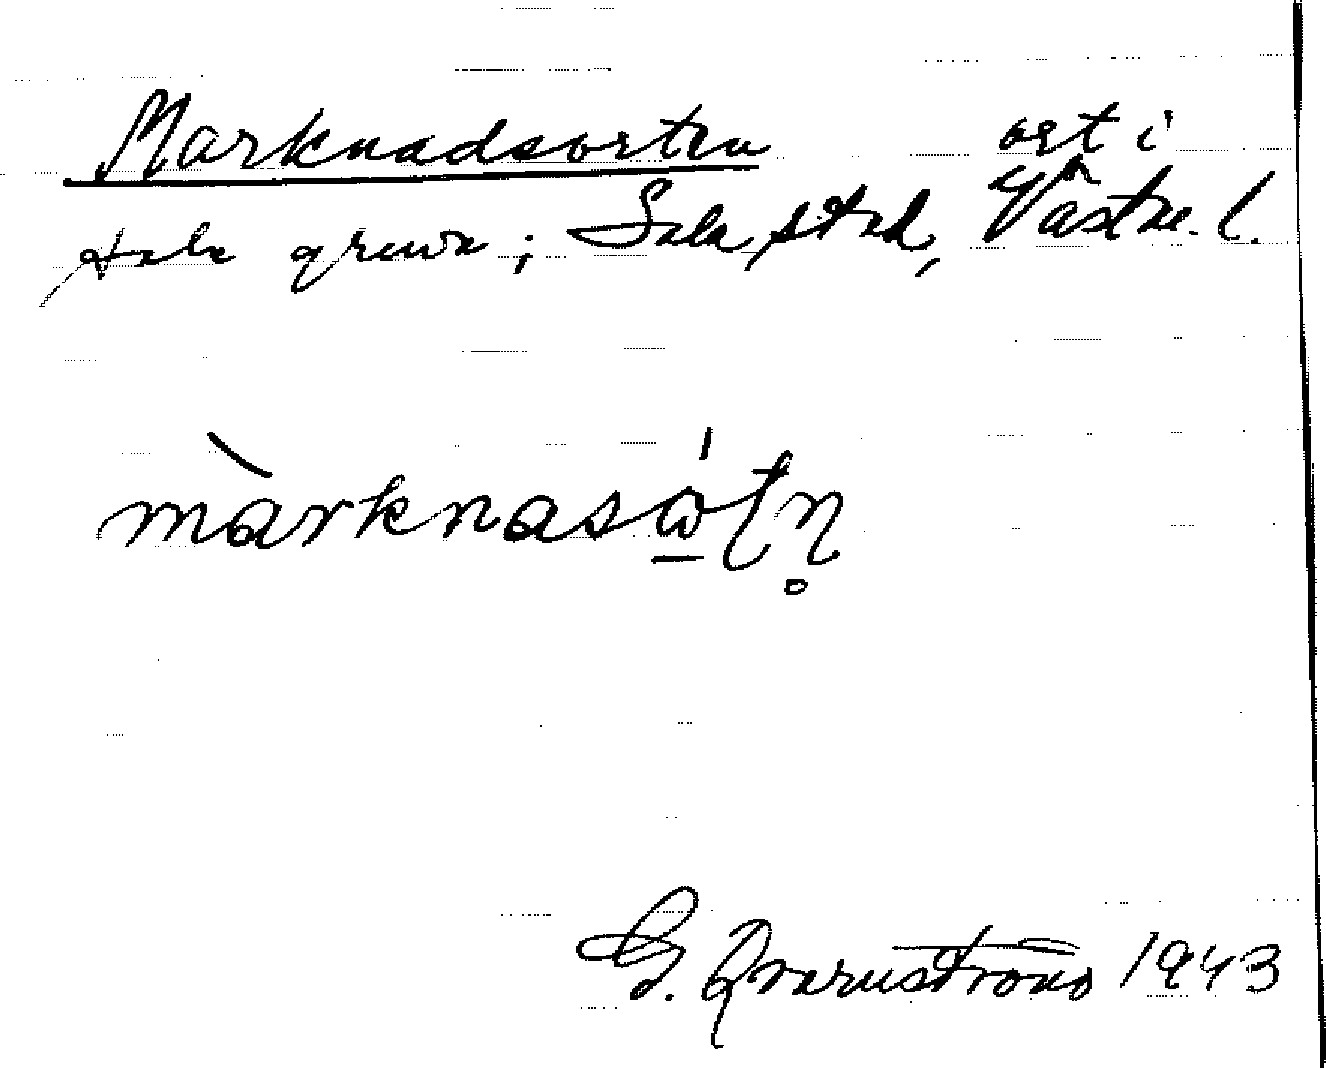 Marknadsorten ort i
Sala gruva; Sala stad, Västm. l.
màrknasώ̲ʈn̥
G. Qvarnström 1943